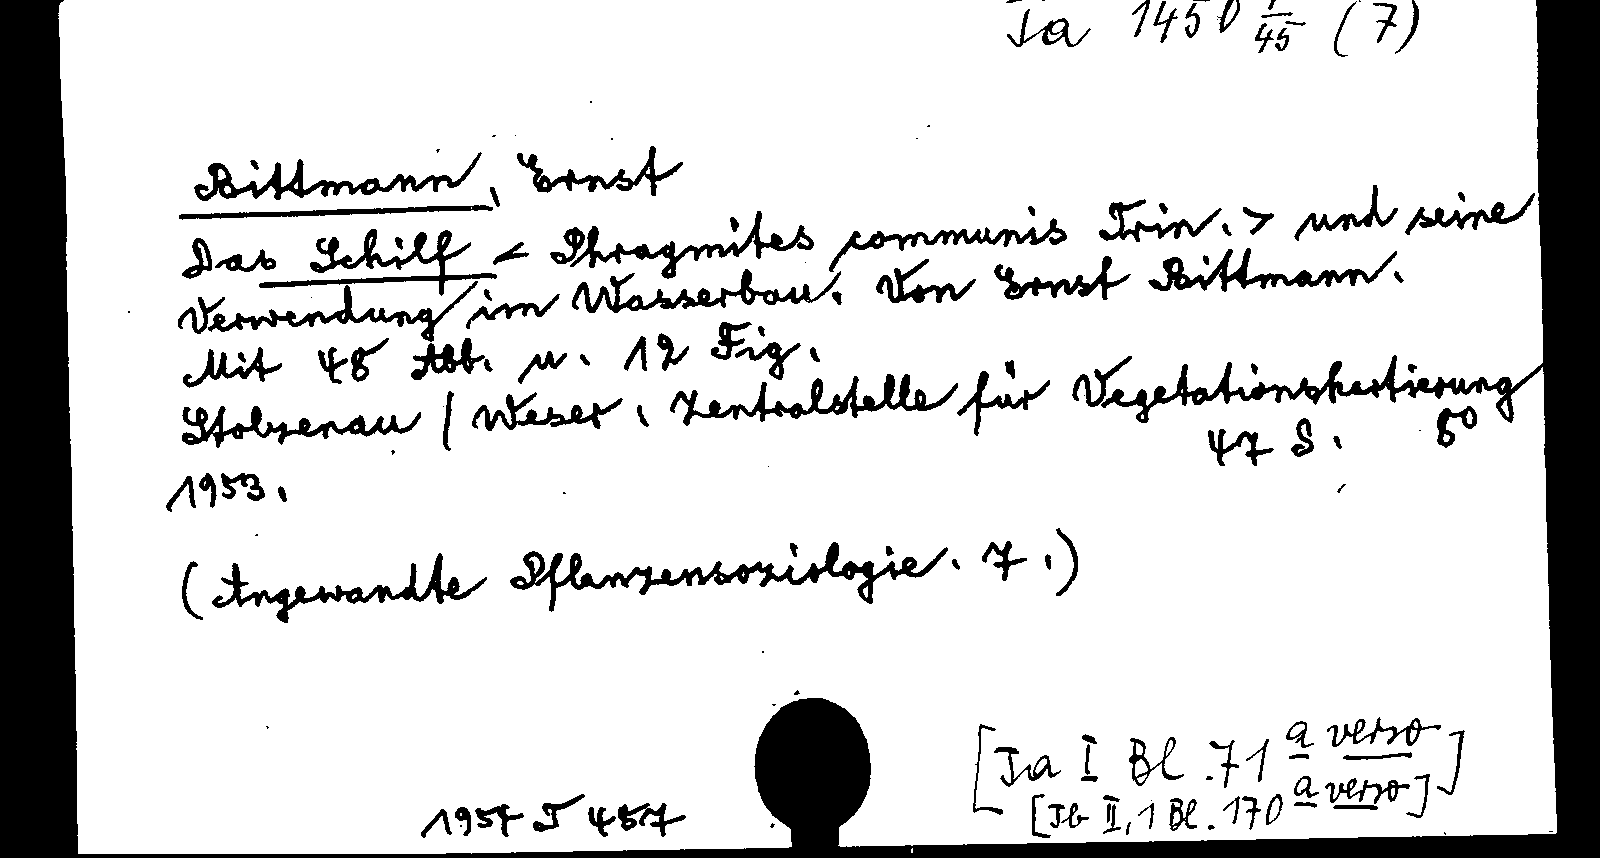 Ja 1450 1/45 (7)
Bittmann, Ernst
Das Schilf < Phragmites communis Trin. > und seine
Verwendung im Wasserbau. Von Ernst Bittmann.
Mit 48 Abb. u. 12 Fig.
Stolzenau / Weser, Zentralstelle für Vegetationskartierung
1953. 47 S. 8º
(Angewandte Pflanzensoziologie. 7.)
[Ja I Bl. 71 a verso]
[Jb II, 1 Bl. 170 a verso]
1957 J 457